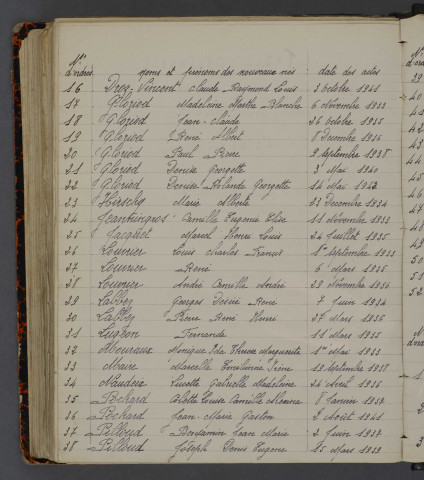 Nos d'ordre noms et prénoms des nouveaux nés date des actes
16 Droz-Vincent Claude Raymond Louis 3 octobre 1941
17 Gloriod Madeleine Marthe Blanche 6 Novembre 1933
18 Gloriod Jean-Claude 26 octobre 1935
19 Gloriod René Albert 8 Décembre 1936
20 Gloriod Paul René 9 Septembre 1938
21 Gloriod Denise Georgette 3 Mai 1940
22 Gloriod Denise Yolande Georgette 14 Mai 1942
23 Hirschy Marie 23 Décembre 1934
24 Jeanningros Camille Eugenie Elise 11 Novembre 1933
25 Jacquet Marcel Henri Louis 24 Juillet 1935
26 Louvrier Louis Charles Francis 1er Septembre 1933
27 Louvrier René 6 Mars 1935
28 Louvrier André Camille André 29 Novembre 1936
29 Labbez Georges Désiré René 7 Juin 1934
30 Labbez Pierre René Henri 27 Mars 1936
31 Lugeon Fernande 11 Mars 1935
32 Monique Ida Thérèse Marguerite 1er Mai 1933
33 Maire Marcelle Emilienne Irène 19 Septembre 1938
34 Lucette Gabrielle Madeleine 24 Avril 1936
35 Pochard Camille 8 Janvier 1937
36 Pochard Jean-Marie Gaston 2 Août 1941
37 Pilloud Benjamin Jean Marie 2 Juin 1937
38 Pilloud Joseph Denis Eugène 15 Mars 1939